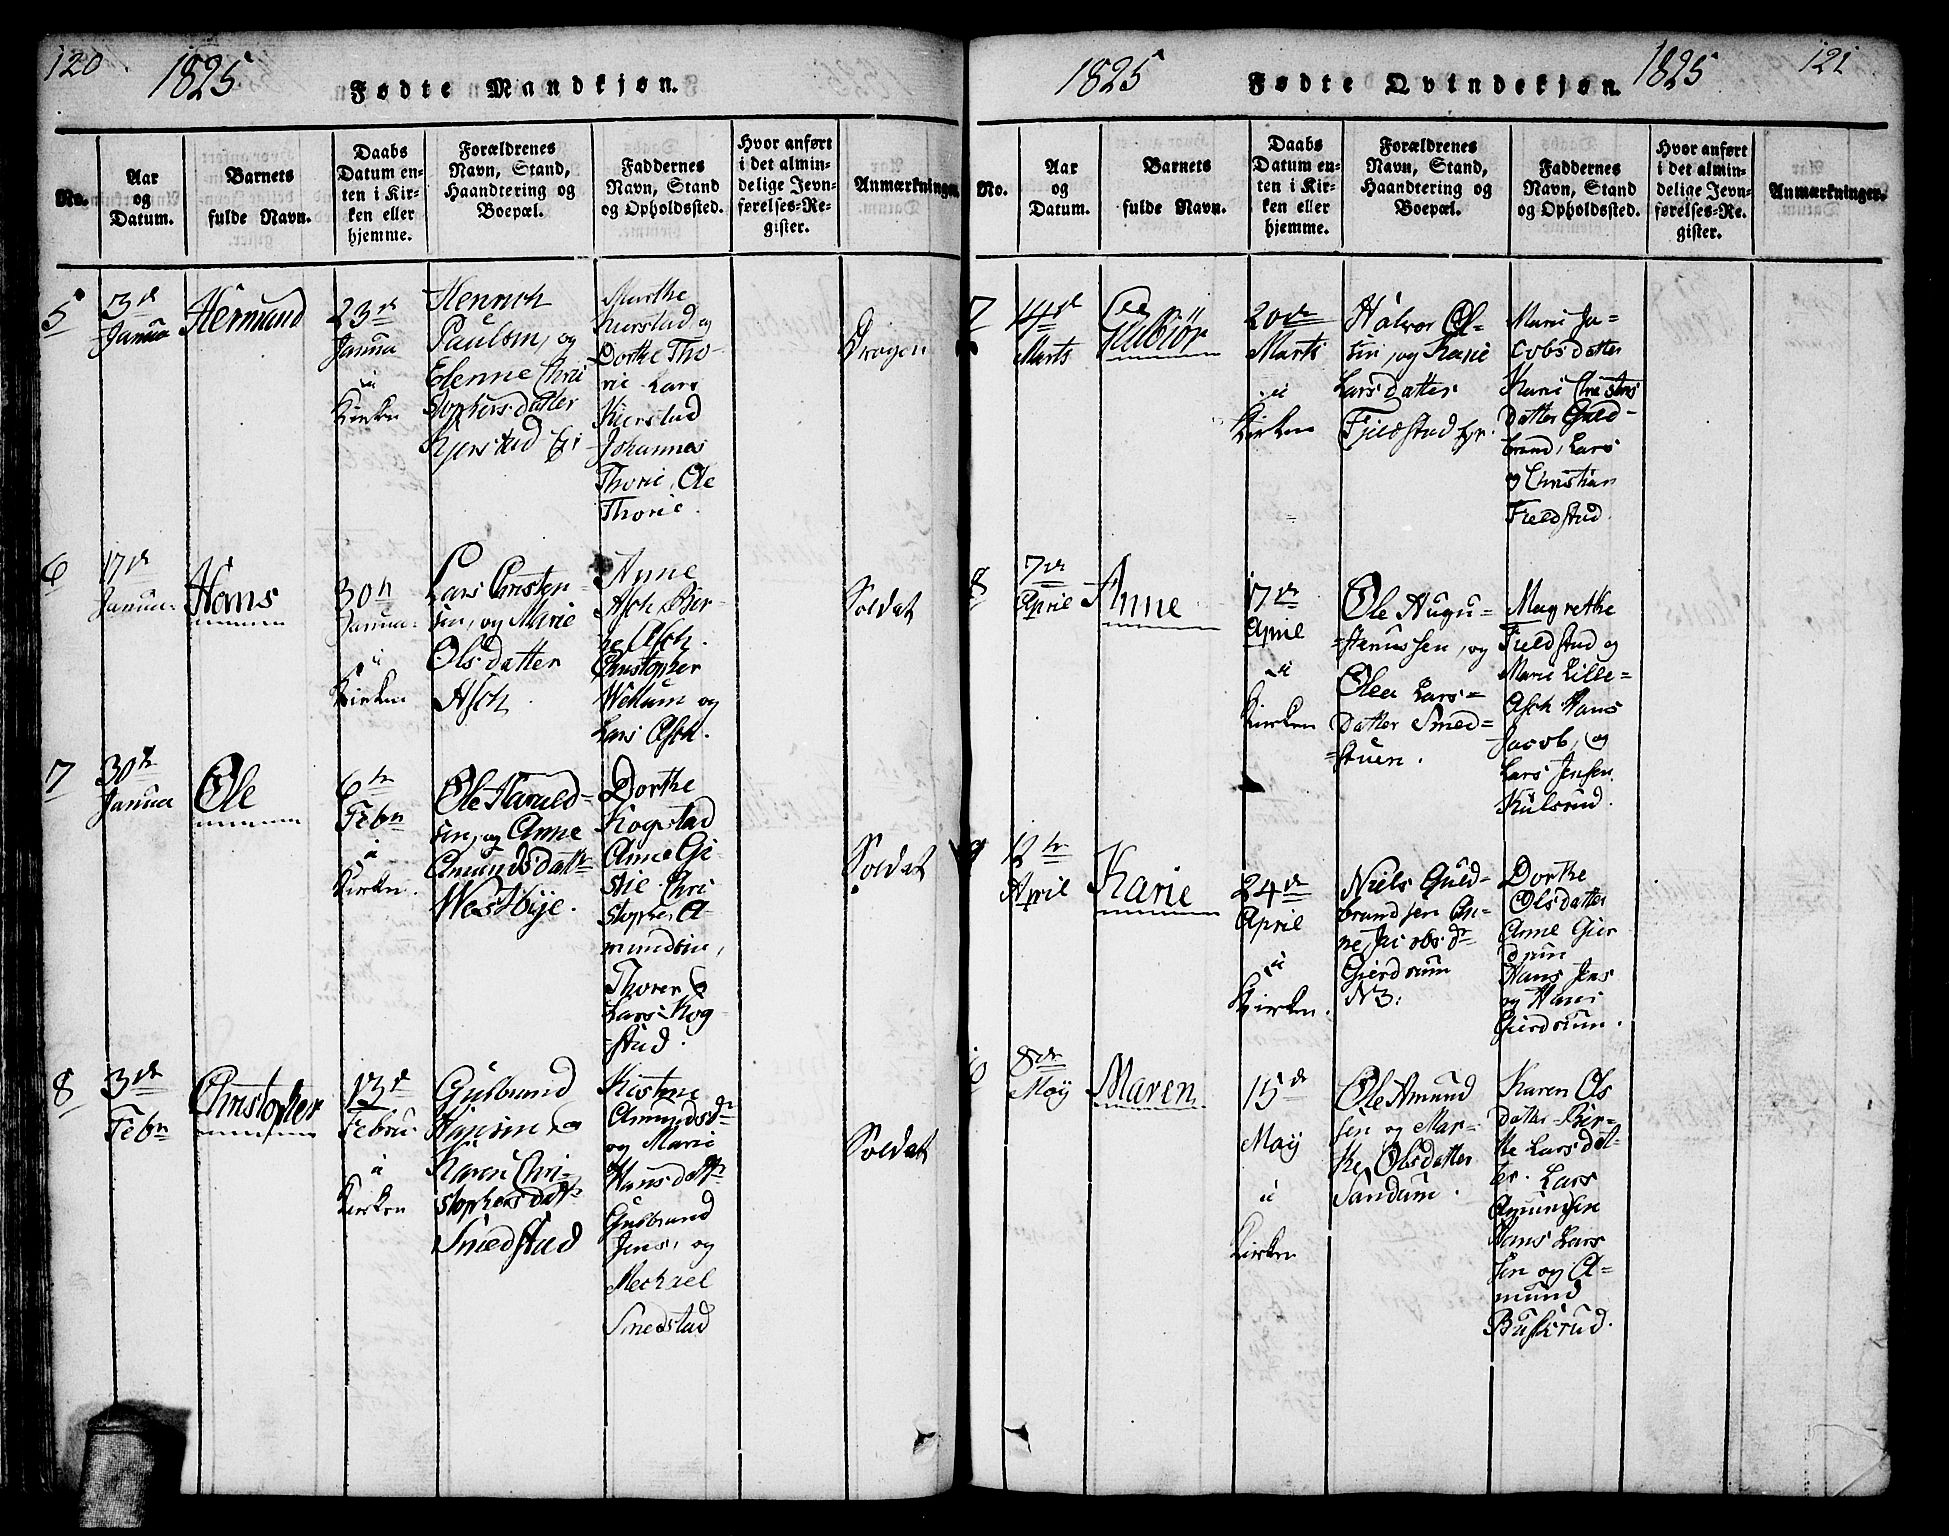 120
1825
Fødte Mandkjøn.
No.
Aar
og
Datum.
Barnets
fulde Navn.
Daabs
Datum en-
ten i Kir-
ken eller
hjemme.
Forældrenes
Navn, Stand,
Haandtering og
Boepæl.
Faddernes
Navn, Stand
og Opholdssted.
Hvor anført
i det almin-
delige Jevn-
førelses-Re-
gister.
Anmærkninger.
5
3d
Janua
Hermund
23d
Janua
i
Kirken
Henrich
Paulsen, og
Elenne Chri
stophersdatter
Kjerstad
Marthe
Kierstad, og
Dorthe Tho-
rie Lars
Kierstad
Johannes
Thorie, Ole
Thorie.
Dragon
6
17d
Janua
Hans
30h
Janua
i
Kirken
Lars Christen-
sen, og Marie
Olsdatter
Asch
Anne
Asch Ber-
he Asch.
Christopher
Wellum og
Lars Asch.
Soldat
7
30h
Janua
Ole
6h
Febr
i
Kirken.
Ole Harald-
sen, og Anne
Amundsdatt
Westbye.
Dorthe
Kogstad
Anne Gi-
stie. Chri
stopher A-
mundsen,
Thorer &
Lars Kog-
stad.
Soldat
8
3d
Febr
Christopher
13d
Febru
i
Kirken
Gulbrand
Hansen, og
Karen Chri-
stophersdatt
Smedstad
Kistine
Amundsdr
og Marie
Hansdatt
Gulbrand
Jens, og
Mechael
Smedstad
Soldat
1825
Fødte Qvindekjøn.
1825
121
No.
Aar
og
Datum.
Barnets
fulde Navn.
Daabs
Datum en-
ten i Kir-
ken eller
hjemme.
Forældrenes
Navn, Stand,
Haandtering og
Boepæl.
Faddernes
Navn, Stand
og Opholdssted.
Hvor anført
i det almin-
delige Jevn-
førelses-Re-
gister.
Anmærkninger.
7
14d
Marts
Gulbiør
20de
Marts
i
Kirken
Halvor Ol-
sen, og Karie
Larsdatter
Fjeldstad
Marie Ja-
cobsdatter
Karie Christens
datter Guld-
brand, Lars
og Christian
Fieldstad.
8
7de
April
Anne
17de
April
i
Kirken
Ole Augu-
stenussen, og
Olea Lars-
datter Smed-
stuen.
Magrethe
Fieldstad og
Marie Lille-
Asch Hans
Jacob, og
Lars Jensen
Kulsrud.
9
12te
April
Karie
24d
April
i
Kirken.
Niels Guld-
brandsen An-
ne Jacobsdr
Gierdrum
N3.
Dorthe
Olsdatter
Anne Gier
drum
Hans Jens
og Hans
Gierdrum.
10
8de
May
Maren
15d
May
i
Kirken
Ole Amund
sen og Mar-
the Olsdatter
Sandum.
Karen Ols
datter Ber-
the Larsdat-
ter. Lars
Amundsen
Hans Lars
sen og A-
mund
Buskrud.